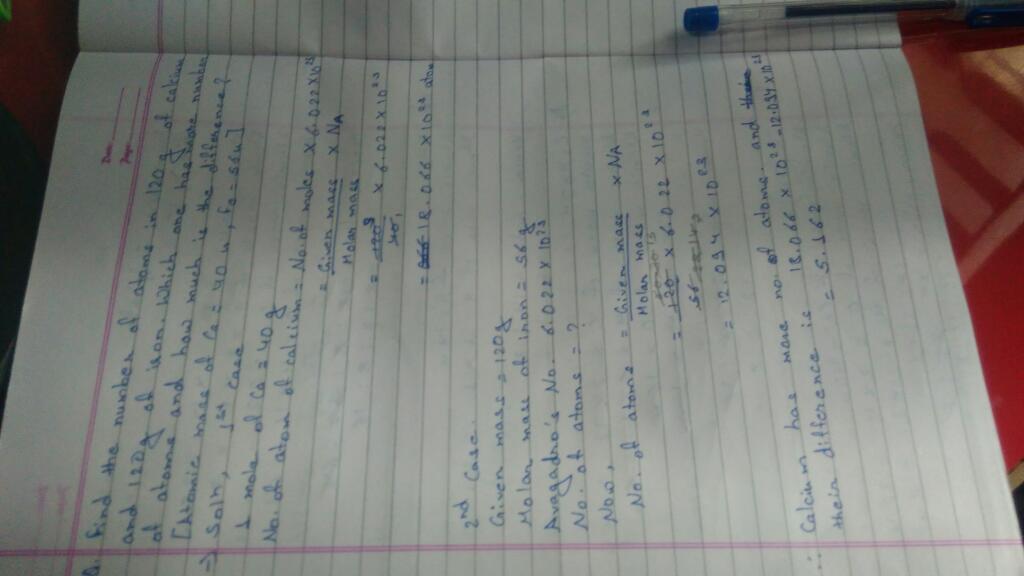 Date
Page
Q. Find the number of atoms in 120 g of calcium
and 120 g of iron. Which one has more number
of atoms and how much is the difference?
[Atomic mass of Ca = 40 u, fe = 56u]
⇒ Soln, 1st case
1 mole of Ca = 40 g
No. of atom of calcium = No. of moles × 6.022 × 10²³
= Given mass / Molar mass × NA
= 120 3 / 40 1 × 6.022 × 10²³
= 18.066 × 10²³ atom
2nd Case.
Given mass = 120 g
Molar mass of iron = 56 g
Avagadro's No. 6.022 × 10²³
No. of atoms = ?
Now,
No. of atoms = Given mass / Molar mass × NA
= 120 / 56 × 6.022 × 10²³
= 12.094 × 10²³
∴ Calcium has more no. of atoms. and
their difference is 18.066 × 10²³ - 12.094 × 10²³
= 5.162